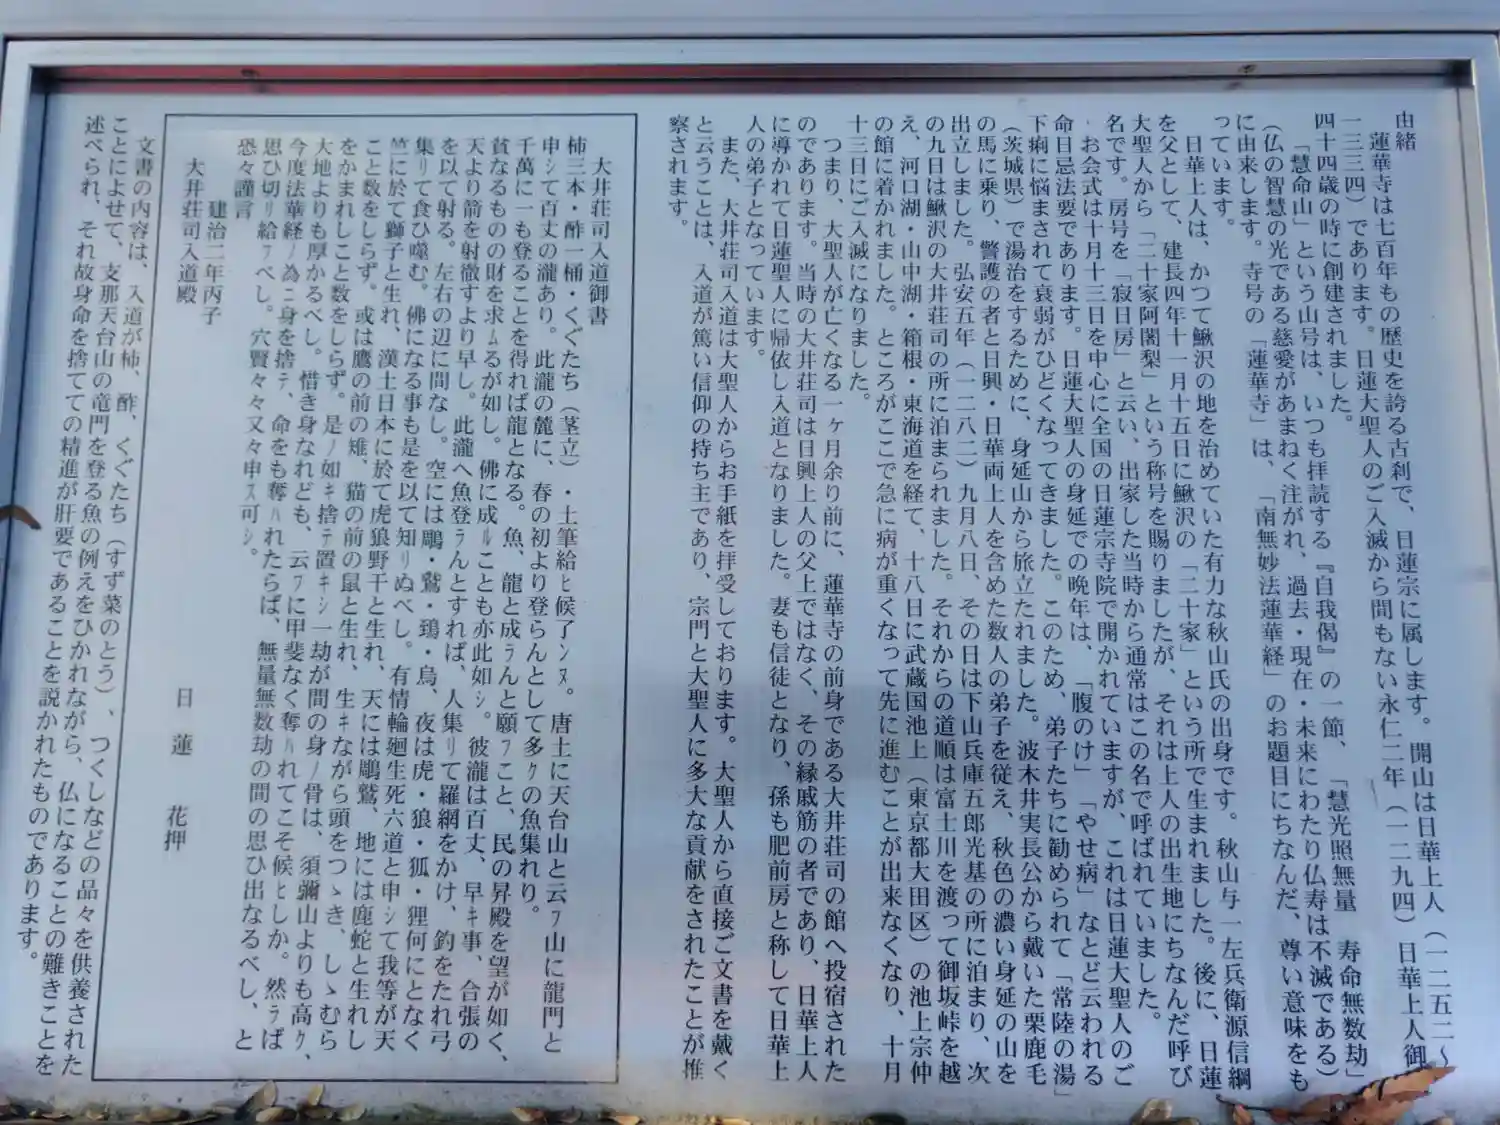 由緒
蓮華寺は七百年もの歴史を誇る古刹で、日蓮宗に属します。開山は日華上人（一二五二～
一三三四）であります。日蓮大聖人のご入滅から間もない永仁二年（一二九四）日華上人御
四十四歳の時に創建されました。
「慧命山」という山号は、いつも拝読する『自我偈』の一節、「慧光照無量　寿命無数劫」
（仏の智慧の光である慈愛があまねく注がれ、過去・現在・未来にわたり仏寿は不滅である）
に由来します。寺号の「蓮華寺」は、「南無妙法蓮華経」のお題目にちなんだ、尊い意味をも
っています。
日華上人は、かつて鰍沢の地を治めていた有力な秋山氏の出身です。秋山与一左兵衛源信綱
を父として、建長四年十一月十五日に鰍沢の「二十家」という所で生まれました。後に、日蓮
大聖人から「二十家阿闍梨」という称号を賜りましたが、それは上人の出生地にちなんだ呼び
名です。房号を「寂日房」と云い、出家した当時から通常はこの名で呼ばれていました。
お会式は十月十三日を中心に全国の日蓮宗寺院で開かれていますが、これは日蓮大聖人のご
命日忌法要であります。日蓮大聖人の身延での晩年は、「腹のけ」「やせ病」などど云われる
下痢に悩まされて衰弱がひどくなってきました。このため、弟子たちに勧められて「常陸の湯」
（茨城県）で湯治をするために、身延山から旅立たれました。波木井実長公から戴いた栗鹿毛
の馬に乗り、警護の者と日興・日華両上人を含めた数人の弟子を従え、秋色の濃い身延の山を
出立しました。弘安五年（一二八二）九月八日、その日は下山兵庫五郎光基の所に泊まり、次
の九日は鰍沢の大井荘司の所に泊まられました。それからの道順は富士川を渡って御坂峠を越
え、河口湖・山中湖・箱根・東海道を経て、十八日に武蔵国池上（東京都大田区）の池上宗仲
の館に着かれました。ところがここで急に病が重くなって先に進むことが出来なくなり、十月
十三日にご入滅になりました。
つまり、大聖人が亡くなる一ヶ月余り前に、蓮華寺の前身である大井荘司の館へ投宿された
のであります。当時の大井荘司は日興上人の父上ではなく、その縁戚筋の者であり、日華上人
に導かれて日蓮聖人に帰依し入道となりました。妻も信徒となり、孫も肥前房と称して日華上
人の弟子となっています。
また、大井荘司入道は大聖人からお手紙を拝受しております。大聖人から直接ご文書を戴く
と云うことは、入道が篤い信仰の持ち主であり、宗門と大聖人に多大な貢献をされたことが推
察されます。
大井荘司入道御書
柿三本・酢一桶・くぐたち（茎立）・土筆給ヒ候了ンヌ。唐土に天台山と云フ山に龍門と
申シて百丈の瀧あり。此瀧の麓に、春の初より登らんとして多クの魚集れり。
千萬に一も登ることを得れば龍となる。魚、龍と成ラんと願フこと、民の昇殿を望が如く、
貧なるものの財を求ムるが如し。佛に成ルことも亦此如シ。彼瀧は百丈、早キ事、合張の
天より箭を射徹すより早し。此瀧へ魚登ラんとすれば、人集リて羅網をかけ、釣をたれ弓
を以て射る。左右の辺に間なし。空には鵰・鷲・鵄・烏、夜は虎・狼・狐・狸何にとなく
集リて食ひ噬む。佛になる事も是を以て知リぬべし。有情輪廻生死六道と申シて我等が天
竺に於て獅子と生れ、漢土日本に於て虎狼野干と生れ、天には鵰鷲、地には鹿蛇と生れし
こと数をしらず。或は鷹の前の雉、猫の前の鼠と生れ、生キながら頭をつゝき、しゝむら
をかまれしこと数をしらず。是ノ如キ捨テ置キシ一劫が間の身ノ骨は、須彌山よりも高ク、
大地よりも厚かるべし。惜き身なれども、云フに甲斐なく奪ハれてこそ候ヒしか。然ラば
今度法華経ノ為ニ身を捨テ、命をも奪ハれたらば、無量無数劫の間の思ひ出なるべし、と
思ひ切リ給フべし。穴賢々々又々申ス可シ。
恐々謹言
建治二年丙子
日蓮　花押
大井荘司入道殿
文書の内容は、入道が柿、酢、くぐたち（すず菜のとう）、つくしなどの品々を供養された
ことによせて、支那天台山の竜門を登る魚の例えをひかれながら、仏になることの難きことを
述べられ、それ故身命を捨てての精進が肝要であることを説かれたものであります。